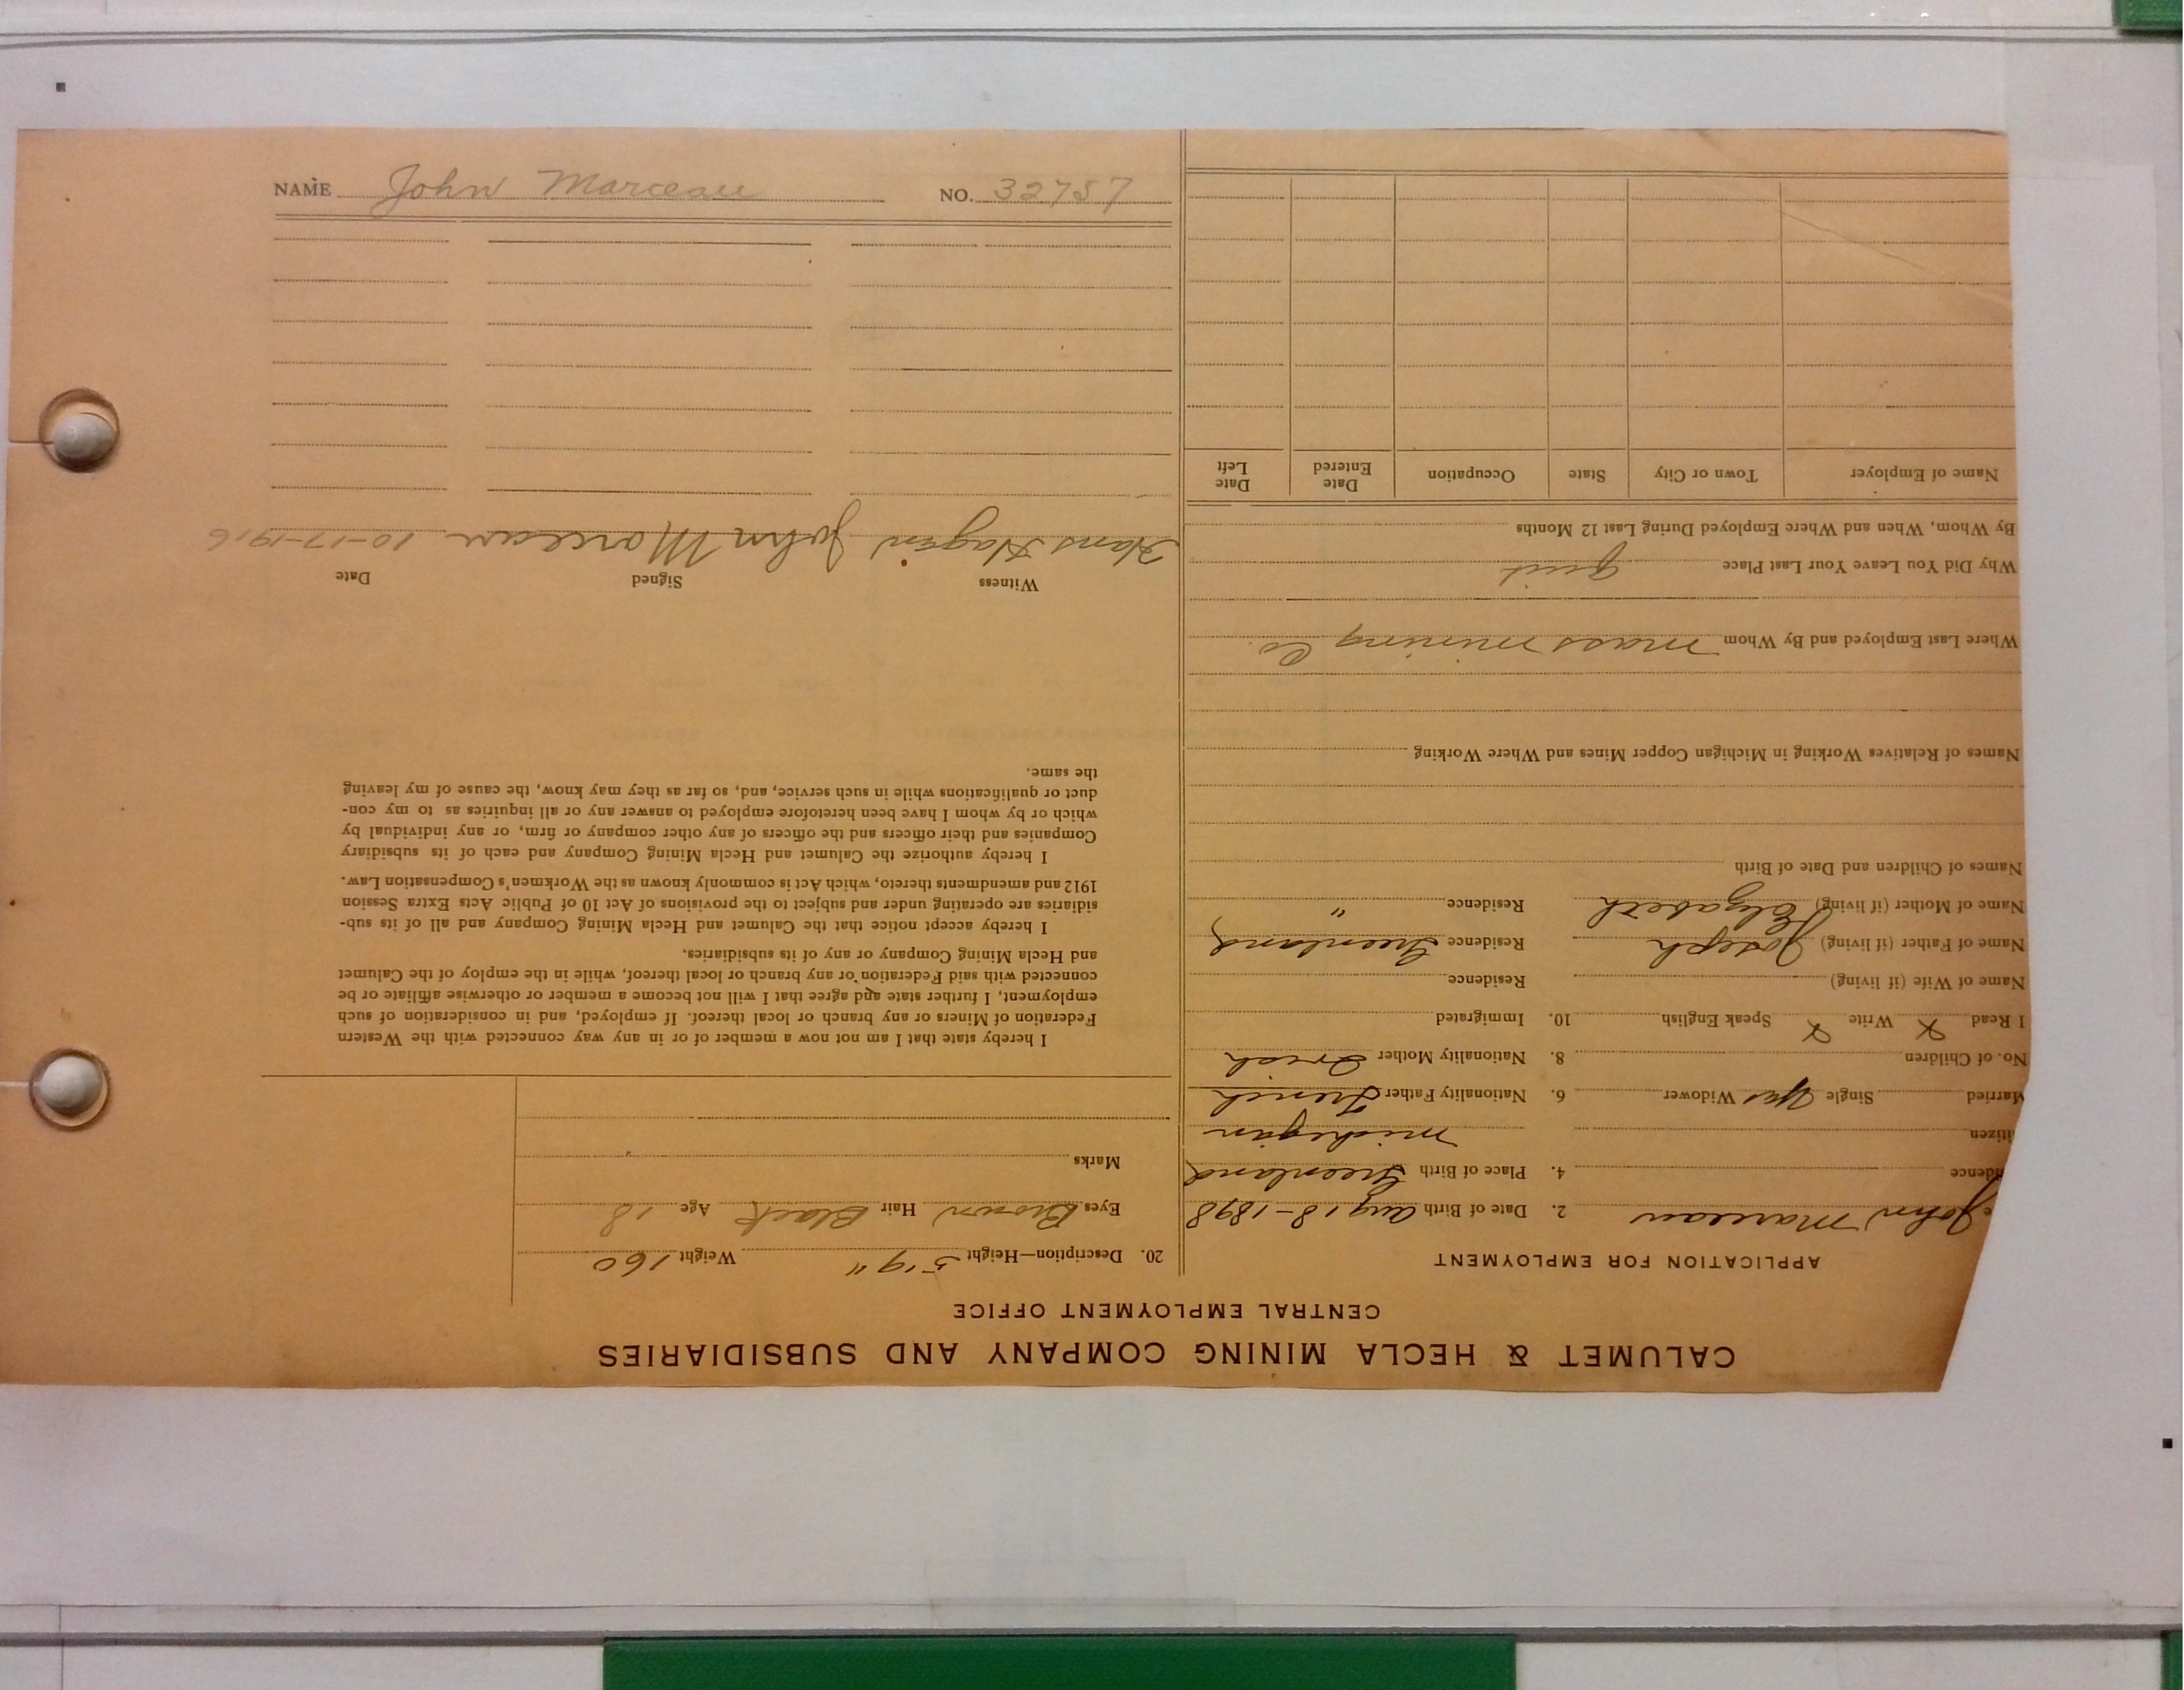 CALUMET & HECLA MINING COMPANY AND SUBSIDIARIES
CENTRAL EMPLOYMENT OFFICE
APPLICATION FOR EMPLOYMENT
e John Marceau 2. Date of Birth Aug 18-1898
idence 4. Place of Birth Greenland
itizen michigan
Married Single Yes Widower 6. Nationality Father French
No. of Children 8. Nationality Mother Irish
I Read X Write X Speak English 10. Immigrated
Name of Wife (if living) Residence
Name of Father (if living) Joseph Residence Greenland
Name of Mother (if living) Elizabeth Residence "
Names of Children and Date of Birth
Names of Relatives Working in Michigan Copper Mines and Where Working
Where Last Employed and By Whom Mass mining Co.
Why Did You Leave Your Last Place quit
By Whom, When and Where Employed During Last 12 Months
Name of Employer Town or City State Occupation Date Entered Date Left
20. Description—Height 5'9" Weight 160
Eyes Brown Hair Black Age 18
Marks
I hereby state that I am not now a member of or in any way connected with the Western
Federation of Miners or any branch or local thereof. If employed, and in consideration of such
employment, I further state and agree that I will not become a member or otherwise affiliate or be
connected with said Federation or any branch or local thereof, while in the employ of the Calumet
and Hecla Mining Company or any of its subsidiaries.
I hereby accept notice that the Calumet and Hecla Mining Company and all of its sub-
sidiaries are operating under and subject to the provisions of Act 10 of Public Acts Extra Session
1912 and amendments thereto, which Act is commonly known as the Workmen's Compensation Law.
I hereby authorize the Calumet and Hecla Mining Company and each of its subsidiary
Companies and their officers and the officers of any other company or firm, or any individual by
which or by whom I have been heretofore employed to answer any or all inquiries as to my con-
duct or qualifications while in such service, and, so far as they may know, the cause of my leaving
the same.
Witness Signed Date
Hans Hagen John Marceau 10-17-1916
NAME John Marceau NO. 32757